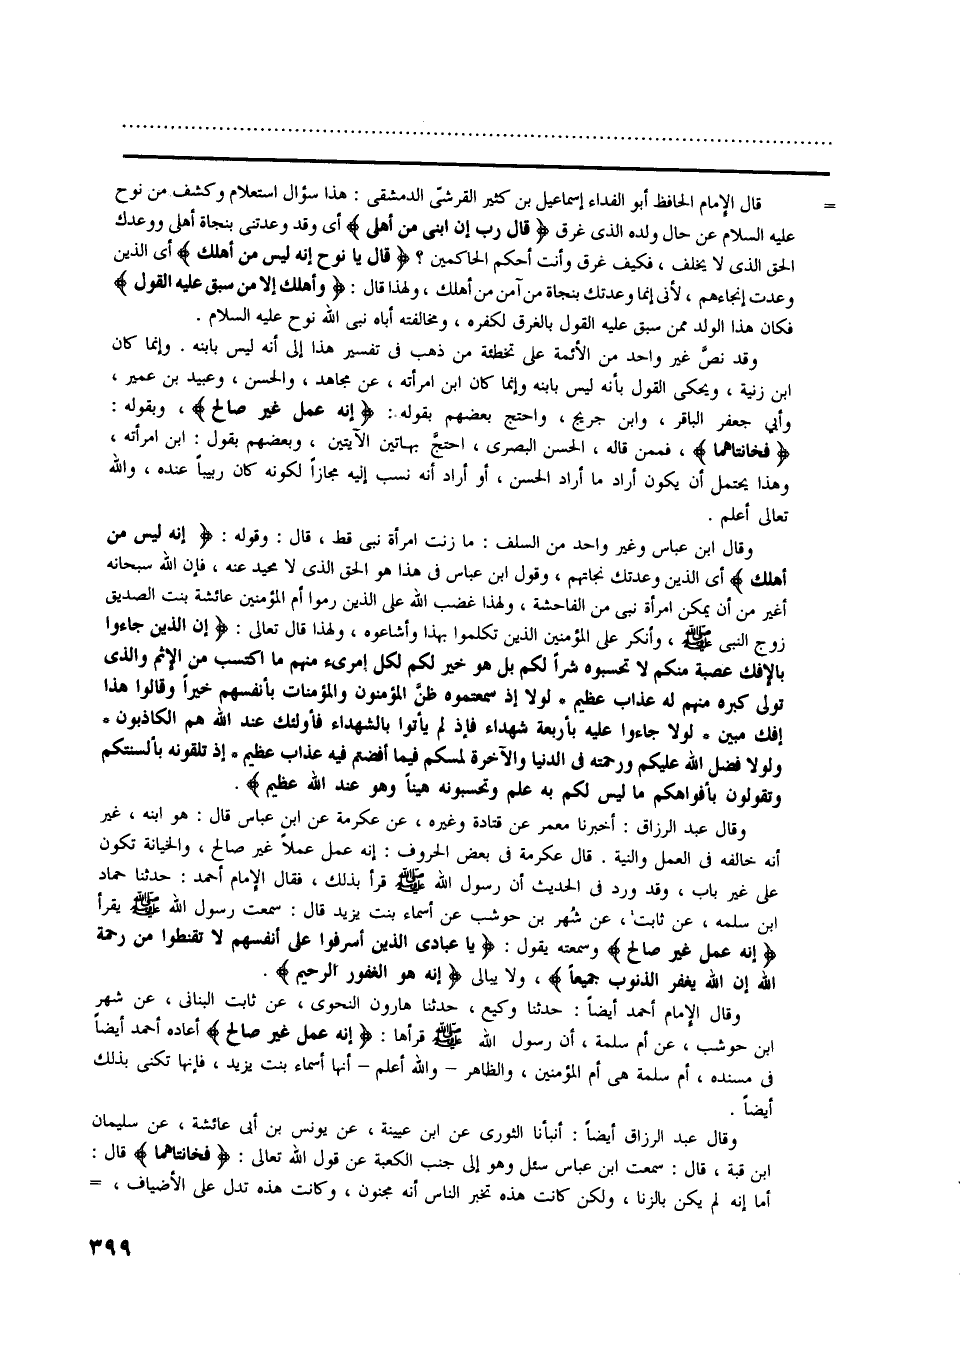 = قال الإمام الحافظ أبو الفداء إسماعيل بن كثير القرشىّ الدمشقى : هذا سؤال استعلام وكشف من نوح
عليه السلام عن حال ولده الذى غرق ﴿ قال رب إن ابنى من أهلى ﴾ أى وقد وعدتنى بنجاة أهلى ووعدك
الحق الذى لا يخلف ، فكيف غرق وأنت أحكم الحاكمين ؟ ﴿ قال يا نوح إنه ليس من أهلك ﴾ أى الذين
وعدت إنجاءهم ، لأنى إنما وعدتك بنجاة من آمن من أهلك ، ولهذا قال : ﴿ وأهلك إلا من سبق عليه القول ﴾
فكان هذا الولد ممن سبق عليه القول بالغرق لكفره ، ومخالفته أباه نبى الله نوح عليه السلام .
وقد نصَّ غير واحد من الأئمة على تخطئة من ذهب فى تفسير هذا إلى أنه ليس بابنه . وإنما كان
ابن زنية ، ويحكى القول بأنه ليس بابنه وإنما كان ابن امرأته ، عن مجاهد ، والحسن ، وعبيد بن عمير ،
وأبي جعفر الباقر ، وابن جريج ، واحتج بعضهم بقوله : ﴿ إنه عمل غير صالح ﴾ ، وبقوله :
﴿ فخانتاهما ﴾ ، فممن قاله ، الحسن البصرى ، احتجَّ بهاتين الآيتين ، وبعضهم بقول : ابن امرأته ،
وهذا يحتمل أن يكون أراد ما أراد الحسن ، أو أراد أنه نسب إليه مجازاً لكونه كان ربيباً عنده ، والله
تعالى أعلم .
وقال ابن عباس وغير واحد من السلف : ما زنت امرأة نبى قط ، قال : وقوله : ﴿ إنه ليس من
أهلك ﴾ أى الذين وعدتك نجاتهم ، وقول ابن عباس فى هذا هو الحق الذى لا محيد عنه ، فإن الله سبحانه
أغير من أن يمكن امرأة نبى من الفاحشة ، ولهذا غضب الله على الذين رموا أم المؤمنين عائشة بنت الصديق
زوج النبى ﷺ ، وأنكر على المؤمنين الذين تكلموا بهذا وأشاعوه ، ولهذا قال تعالى : ﴿ إن الذين جاءوا
بالإفك عصبة منكم لا تحسبوه شراً لكم بل هو خير لكم لكل إمرىء منهم ما اكتسب من الإثم والذى
تولى كبره منهم له عذاب عظيم * لولا إذ سمعتموه ظنَّ المؤمنون والمؤمنات بأنفسهم خيراً وقالوا هذا
إفك مبين * لولا جاءوا عليه بأربعة شهداء فإذ لم يأتوا بالشهداء فأولئك عند الله هم الكاذبون *
ولولا فضل الله عليكم ورحمته فى الدنيا والآخرة لمسكم فيما أفضتم فيه عذاب عظيم * إذ تلقونه بألسنتكم
وتقولون بأفواهكم ما ليس لكم به علم وتحسبونه هيناً وهو عند الله عظيم ﴾ .
وقال عبد الرزاق : أخبرنا معمر عن قتادة وغيره ، عن عكرمة عن ابن عباس قال : هو ابنه ، غير
أنه خالفه فى العمل والنية . قال عكرمة فى بعض الحروف : إنه عمل عملاً غير صالح ، والخيانة تكون
على غير باب ، وقد ورد فى الحديث أن رسول الله ﷺ قرأ بذلك ، فقال الإمام أحمد : حدثنا حماد
ابن سلمه ، عن ثابت ، عن شُهر بن حوشب عن أسماء بنت يزيد قال : سمعت رسول الله ﷺ يقرأ
﴿ إنه عمل غير صالح ﴾ وسمعته يقول : ﴿ يا عبادى الذين أسرفوا على أنفسهم لا تقنطوا من رحمة
الله إن الله يغفر الذنوب جميعاً ﴾ ، ولا يبالى ﴿ إنه هو الغفور الرحيم ﴾ .
وقال الإمام أحمد أيضاً : حدثنا وكيع ، حدثنا هارون النحوى ، عن ثابت البنانى ، عن شهر
ابن حوشب ، عن أم سلمة ، أن رسول الله ﷺ قرأها : ﴿ إنه عمل غير صالح ﴾ أعاده أحمد أيضاً
فى مسنده ، أم سلمة هى أم المؤمنين ، والظاهر – والله أعلم – أنها أسماء بنت يزيد ، فإنها تكنى بذلك
أيضاً .
وقال عبد الرزاق أيضاً : أنبأنا الثورى عن ابن عيينة ، عن يونس بن أبى عائشة ، عن سليمان
ابن قبة ، قال : سمعت ابن عباس سئل وهو إلى جنب الكعبة عن قول الله تعالى : ﴿ فخانتاهما ﴾ قال :
أما إنه لم يكن بالزنا ، ولكن كانت هذه تخبر الناس أنه مجنون ، وكانت هذه تدل على الأضياف ، =
٣٩٩